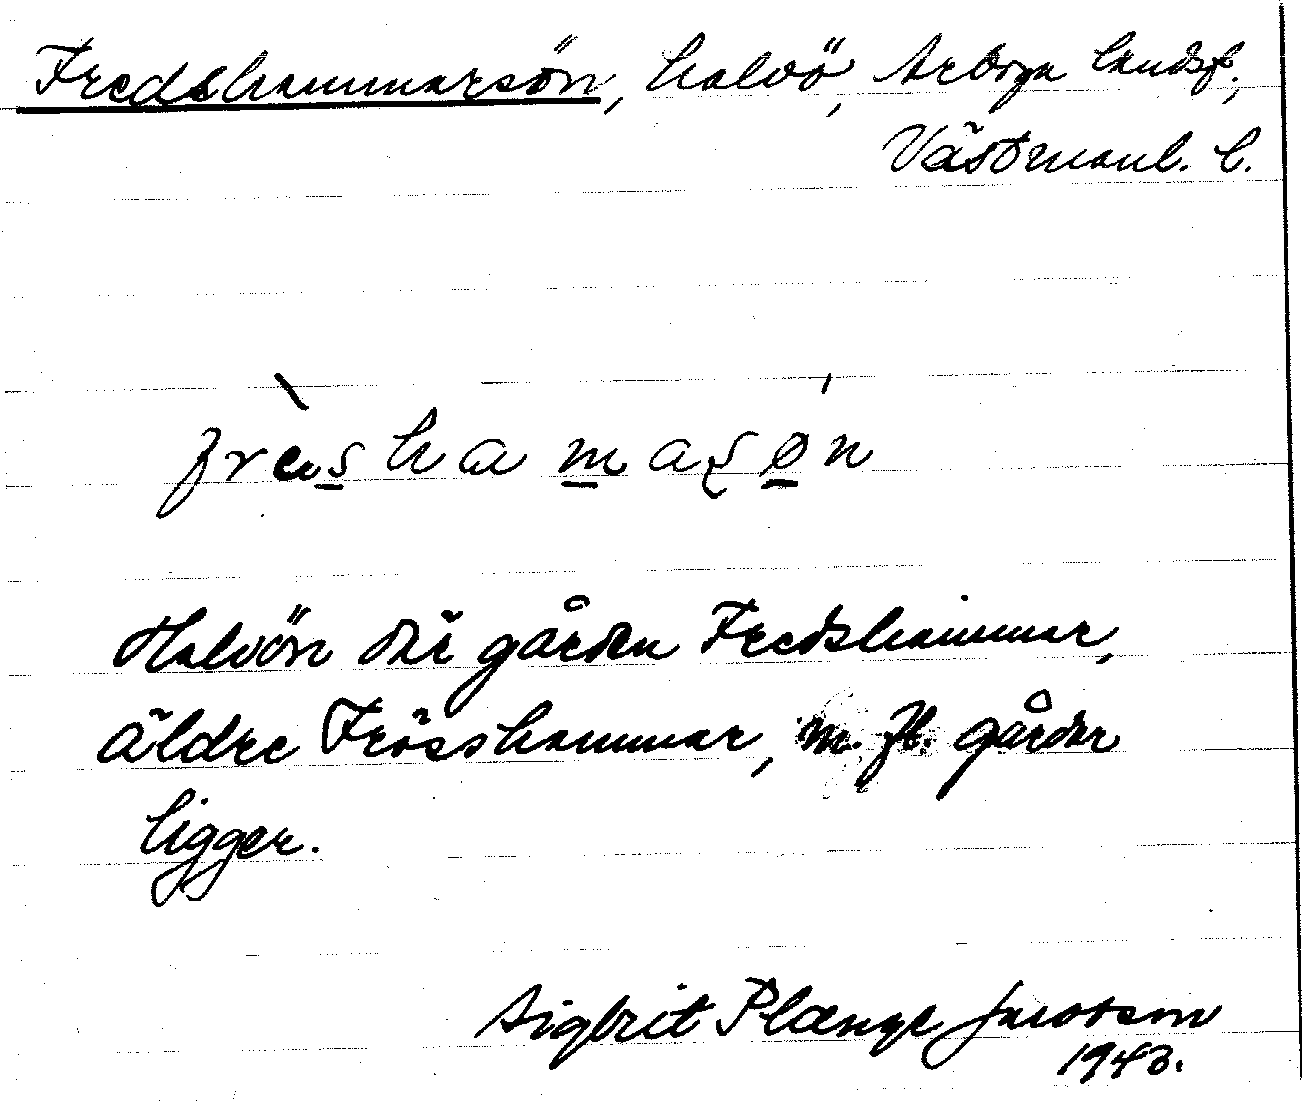 Fredshammarsön, halvö, Arboga landsf.,
Västmanl. l.
frèshamaʂøn
Halvön där gården Fredshammar,
äldre Frösshammar, m. fl. gårdar
ligger.
Sigbrit Plænge Jacobson
1943.